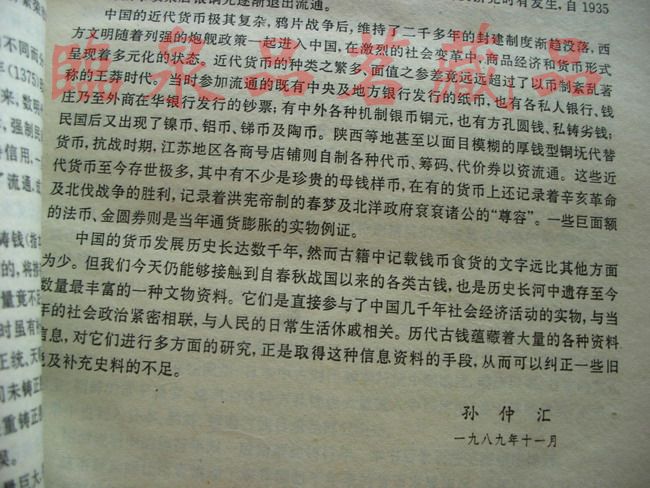 步退出流通。
究时有发生，自1935
中国的近代货币极其复杂，鸦片战争后，维持了二千多年的封建制度渐趋没落，西
方文明随着列强的炮舰政策一起进入中国，在激烈的社会变革中，商品经济和货币形式
呈现着多元化的状态。近代货币的种类之繁多，面值之参差竟远远超过了以币制紊乱著
称的王莽时代。当时参加流通的既有中央及地方银行发行的纸币，也有各私人银行、钱
庄乃至外商在华银行发行的钞票；有中外各种机制银币铜元，也有方孔圆钱、私铸劣钱；
民国后又出现了镍币、铝币、锑币及陶币。陕西等地甚至以面目模糊的厚钱型铜坯代替
货币，抗战时期，江苏地区各商号店铺则自制各种代币、筹码、代价券以资流通。这些近
代货币至今存世极多，其中有不少是珍贵的母钱样币，在有的货币上还记录着辛亥革命
及北伐战争的胜利，记录着洪宪帝制的春梦及北洋政府衮衮诸公的“尊容”。一些巨面额
的法币、金圆券则是当年通货膨胀的实物例证。
中国的货币发展历史长达数千年，然而古籍中记载钱币食货的文字远比其他方面
为少。但我们今天仍能够接触到自春秋战国以来的各类古钱，也是历史长河中遗存至今
数量最丰富的一种文物资料。它们是直接参与了中国几千年社会经济活动的实物，与当
年的社会政治紧密相联，与人民的日常生活休戚相关。历代古钱蕴藏着大量的各种资料
信息，对它们进行多方面的研究，正是取得这种信息资料的手段，从而可以纠正一些旧
及补充史料的不足。
孙仲汇
一九八九年十一月
不同而
(1375)
来，数
强制
信用.一
了流通，
铸钱(指
的，将
量竟不
时虽有
正统、天
司未铸正
重铸正
吴。
量巨大
临泉品茗藏品